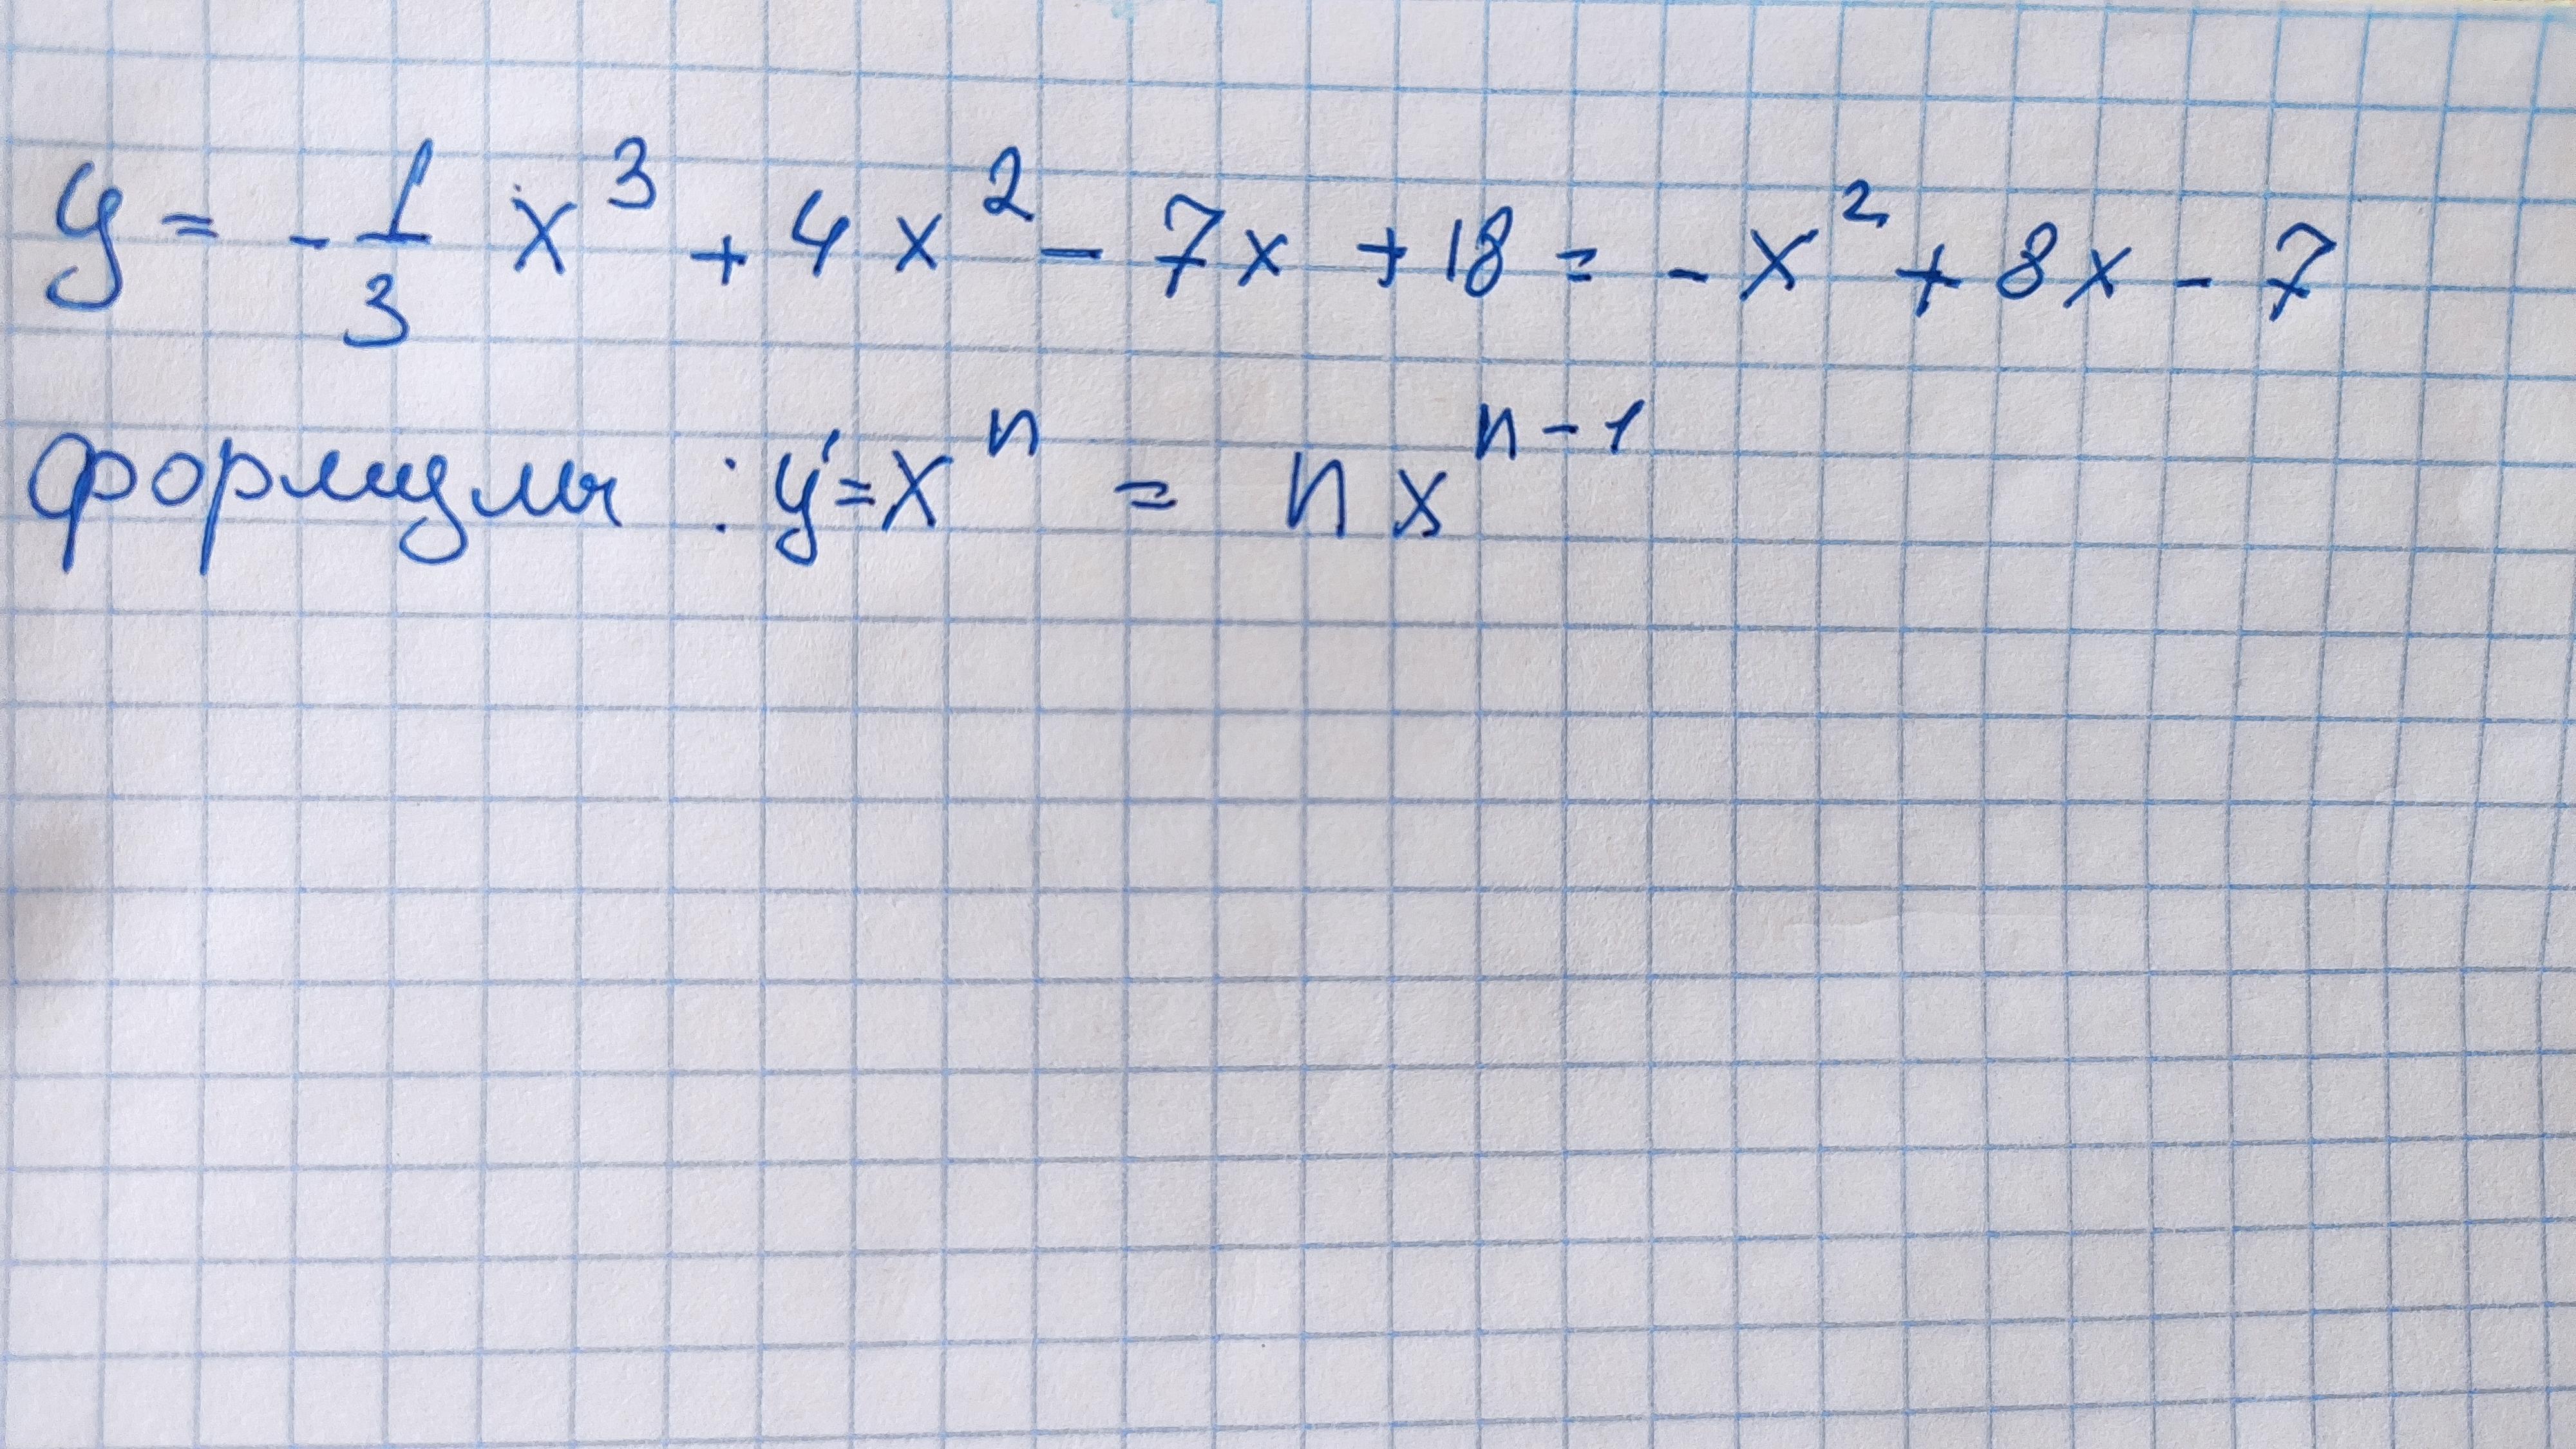 y = -1/3 x³ + 4x² - 7x + 18 = -x² + 8x - 7
формулы : y'=xⁿ = nxⁿ⁻¹